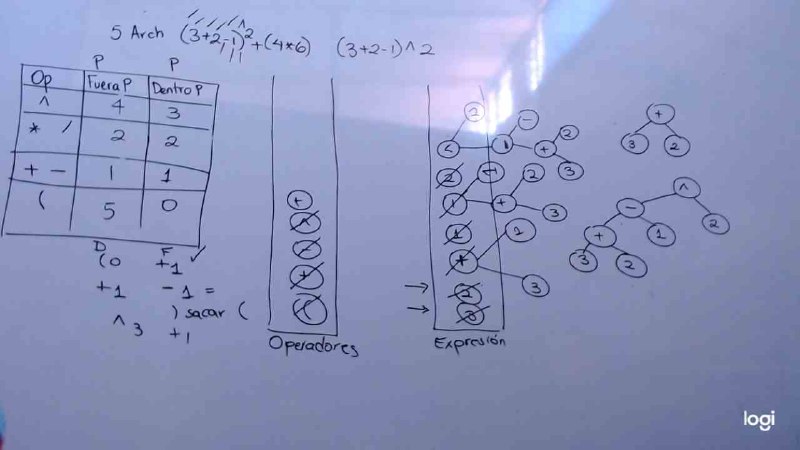 5 Arch (3+2-1)^2+(4*6) (3+2-1)^2
P P
Op Fuera P Dentro P
^ 4 3
* / 2 2
+ - 1 1
( 5 0
D F
(0 +1 ✓
+1 -1 =
^3 ) sacar (
+1
+
^
-
+
(
Operadores
2
1
2
3
3
2
Expresión
+
3 2
^
- 2
+ 1
3 2
logi